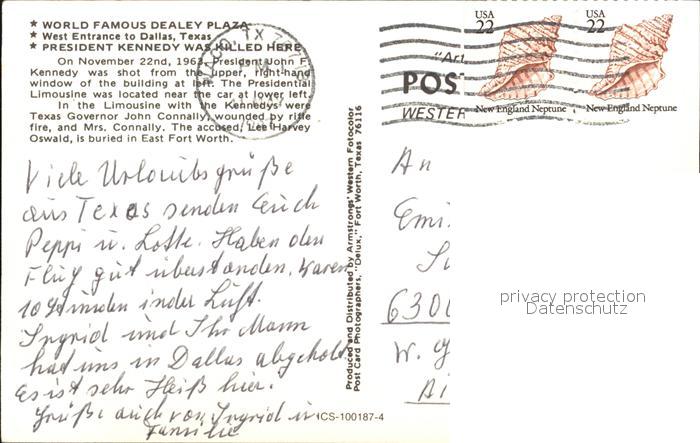 ★ WORLD FAMOUS DEALEY PLAZA
★ West Entrance to Dallas, Texas
★ PRESIDENT KENNEDY WAS KILLED HERE
On November 22nd, 1963, President John F.
Kennedy was shot from the upper, right-hand
window of the building at left. The Presidential
Limousine was located near the car at lower left.
In the Limousine with the Kennedys were
Texas Governor John Connally, wounded by rifle
fire, and Mrs. Connally. The accused, Lee Harvey
Oswald, is buried in East Fort Worth.
WACO, TX
PM
Viele Urlaubsgrüße
aus Texas senden Euch
Peppi u. Lotte. Haben den
Flug gut überstanden. Waren
10 Stunden in der Luft.
Ingrid und Ihr Mann
hat uns in Dallas abgeholt.
Es ist sehr Heiß hier.
Grüße auch von Ingrid u
Familie
Produced and Distributed by Armstrongs' Western Fotocolor
Post Card Photographers, "Delux," Fort Worth, Texas 76116
ICS-100187-4
USA
22
New England Neptune
USA
22
New England Neptune
"Art
POS
WESTER
An
Emi
630
W. G
privacy protection
Datenschutz